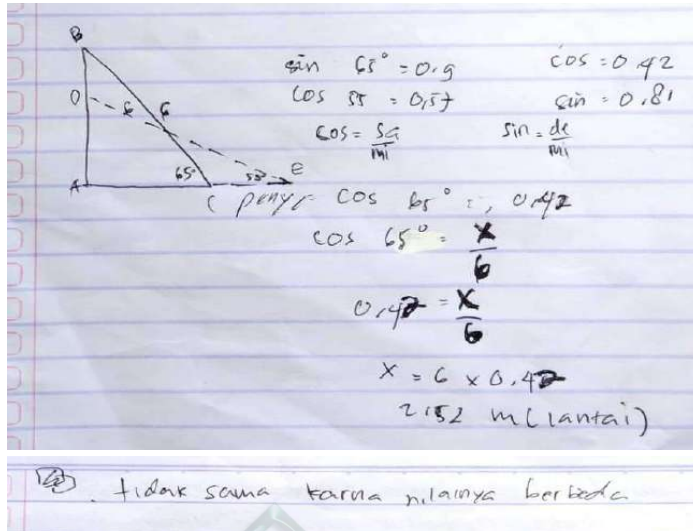 B
D 6 6
A 65° 53° e
C
sin 65° = 0,9 cos = 0.42
cos 55 = 0,57 sin = 0.81
cos = sa/mi sin = de/mi
peny: cos 65° = 0,42
cos 65° = x/6
0,42 = x/6
x = 6 x 0.42
2,52 m (lantai)
tidak sama karna nilainya berbeda